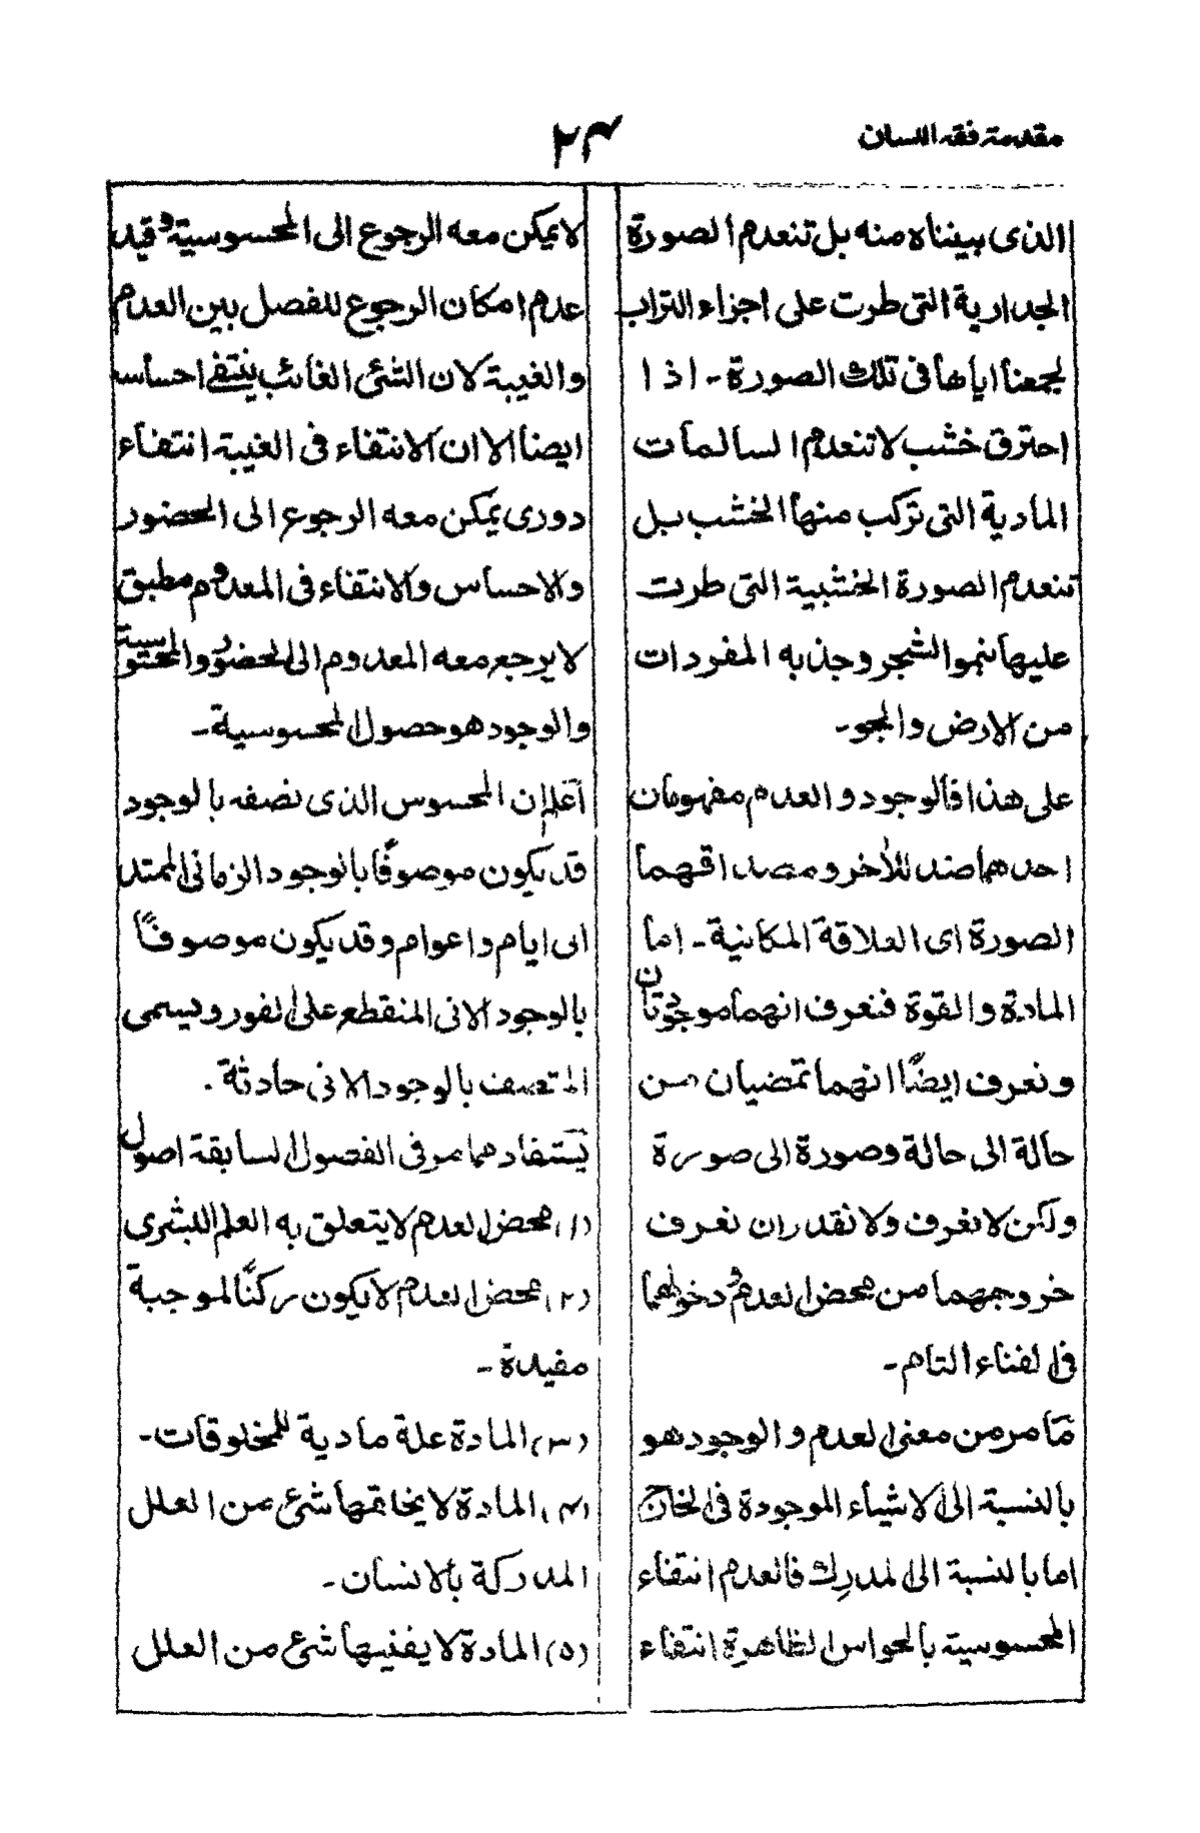 مقدمة فقه اللسان
٢٤
الذى بيناه منه بل تنعدم الصورة
الجدارية التى طرت على اجزاء التراب
لجمعنا اياها فى تلك الصورة - اذا
احترق خشب لا تنعدم السالمات
المادية التى تركب منها الخشب بل
تنعدم الصورة الخشبية التى طرت
عليها بنمو الشجر و جذبه المفردات
من الارض والجو -
على هذا فالوجود و العدم مفهومان
احدهما ضد للأخر و مصداقهما
الصورة اى العلاقة المكانية - اما
المادة و القوة فنعرف انهما موجودتان
و نعرف ايضًا انهما تمضيان من
حالة الى حالة وصورة الى صورة
ولكن لا نعرف ولا نقدر ان نعرف
خروجهما من محض العدم و دخولهما
فى الفناء التام -
ما مر من معنى العدم و الوجود هو
بالنسبة الى الاشياء الموجودة فى الخارج
اما بالنسبة الى المدرِك فالعدم انتفاء
المحسوسية بالحواس الظاهرة انتفاء
لا يمكن معه الرجوع الى المحسوسية و قيد
عدم امكان الرجوع للفصل بين العدم
و الغيبة لان الشئ الغائب ينتفے احساسه
ايضا الا ان الانتفاء فى الغيبة انتفاء
دورى يمكن معه الرجوع الى الحضور
والاحساس والانتفاء فى المعدوم مطبق
لا يرجع معه المعدوم الى الحضور والمحسوسية
والوجود هو حصول المحسوسية -
اعلم ان المحسوس الذى نصفه بالوجود
قد يكون موصوفًا بالوجود الزمانى الممتد
الى ايام و اعوام و قد يكون موصوفًا
بالوجود الانى المنقطع على الفور و يسمى
المتصف بالوجود الانى حادثة .
تستفاد مما مر فى الفصول السابقة اصول
(١) محض العدم لا يتعلق به العلم البشرى
(٢) محض العدم لا يكون ركنًا لموجبة
مفيدة -
(٣) المادة علة مادية للمخلوقات -
(٤) المادة لا يخلقها شئ من العلل
المدركة بالانسان -
(٥) المادة لا يفنيها شئ من العلل